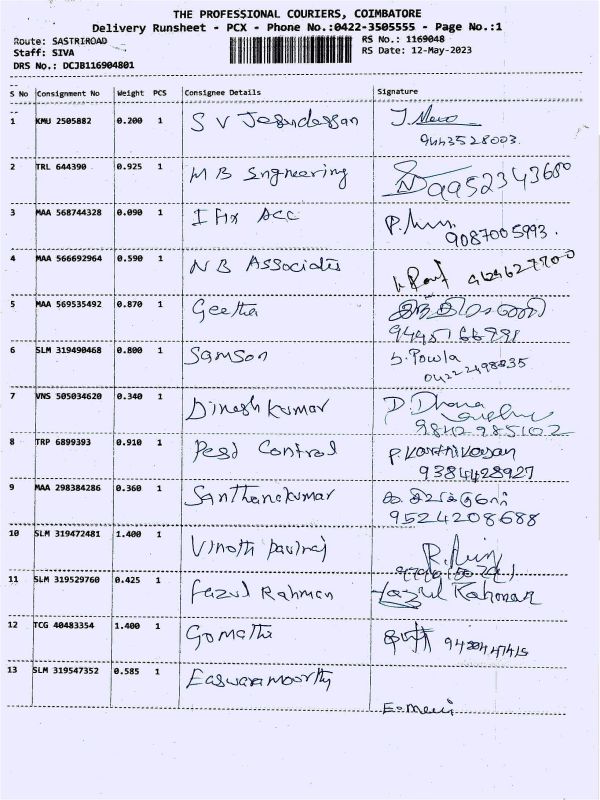 THE PROFESSIONAL COURIERS, COIMBATORE
Delivery Runsheet - PCX - Phone No.:0422-3505555 - Page No.:1
Route: SASTRIROAD RS No.: 1169048
Staff: SIVA RS Date: 12-May-2023
DRS No.: DCJB116904801
S No Consignment No Weight PCS Consignee Details Signature
1 KMU 2505882 0.200 1 S V Jesudassan
9443528003.
2 TRL 644390 0.925 1 M B Engneering 9952343680
3 MAA 568744328 0.090 1 I Fix Acc
9087005993.
4 MAA 566692964 0.590 1 N B Associates
5 MAA 569535492 0.870 1 Geetha
6 SLM 319490468 0.800 1 Samson S. Powla
04222498835
7 VNS 505034620 0.340 1 Dinesh kumar P. Dhana
9842985102
8 TRP 6899393 0.910 1 Pest Control P. Karthivasan
9384428927
9 MAA 298384286 0.360 1 Santhanakumar
9524208688
10 SLM 319472481 1.400 1 Vinoth pauiraj
11 SLM 319529760 0.425 1 Fazul Rahman Fazul Rahman
12 TCG 40483354 1.400 1 Gomathi
13 SLM 319547352 0.585 1 Easwaramoorthy